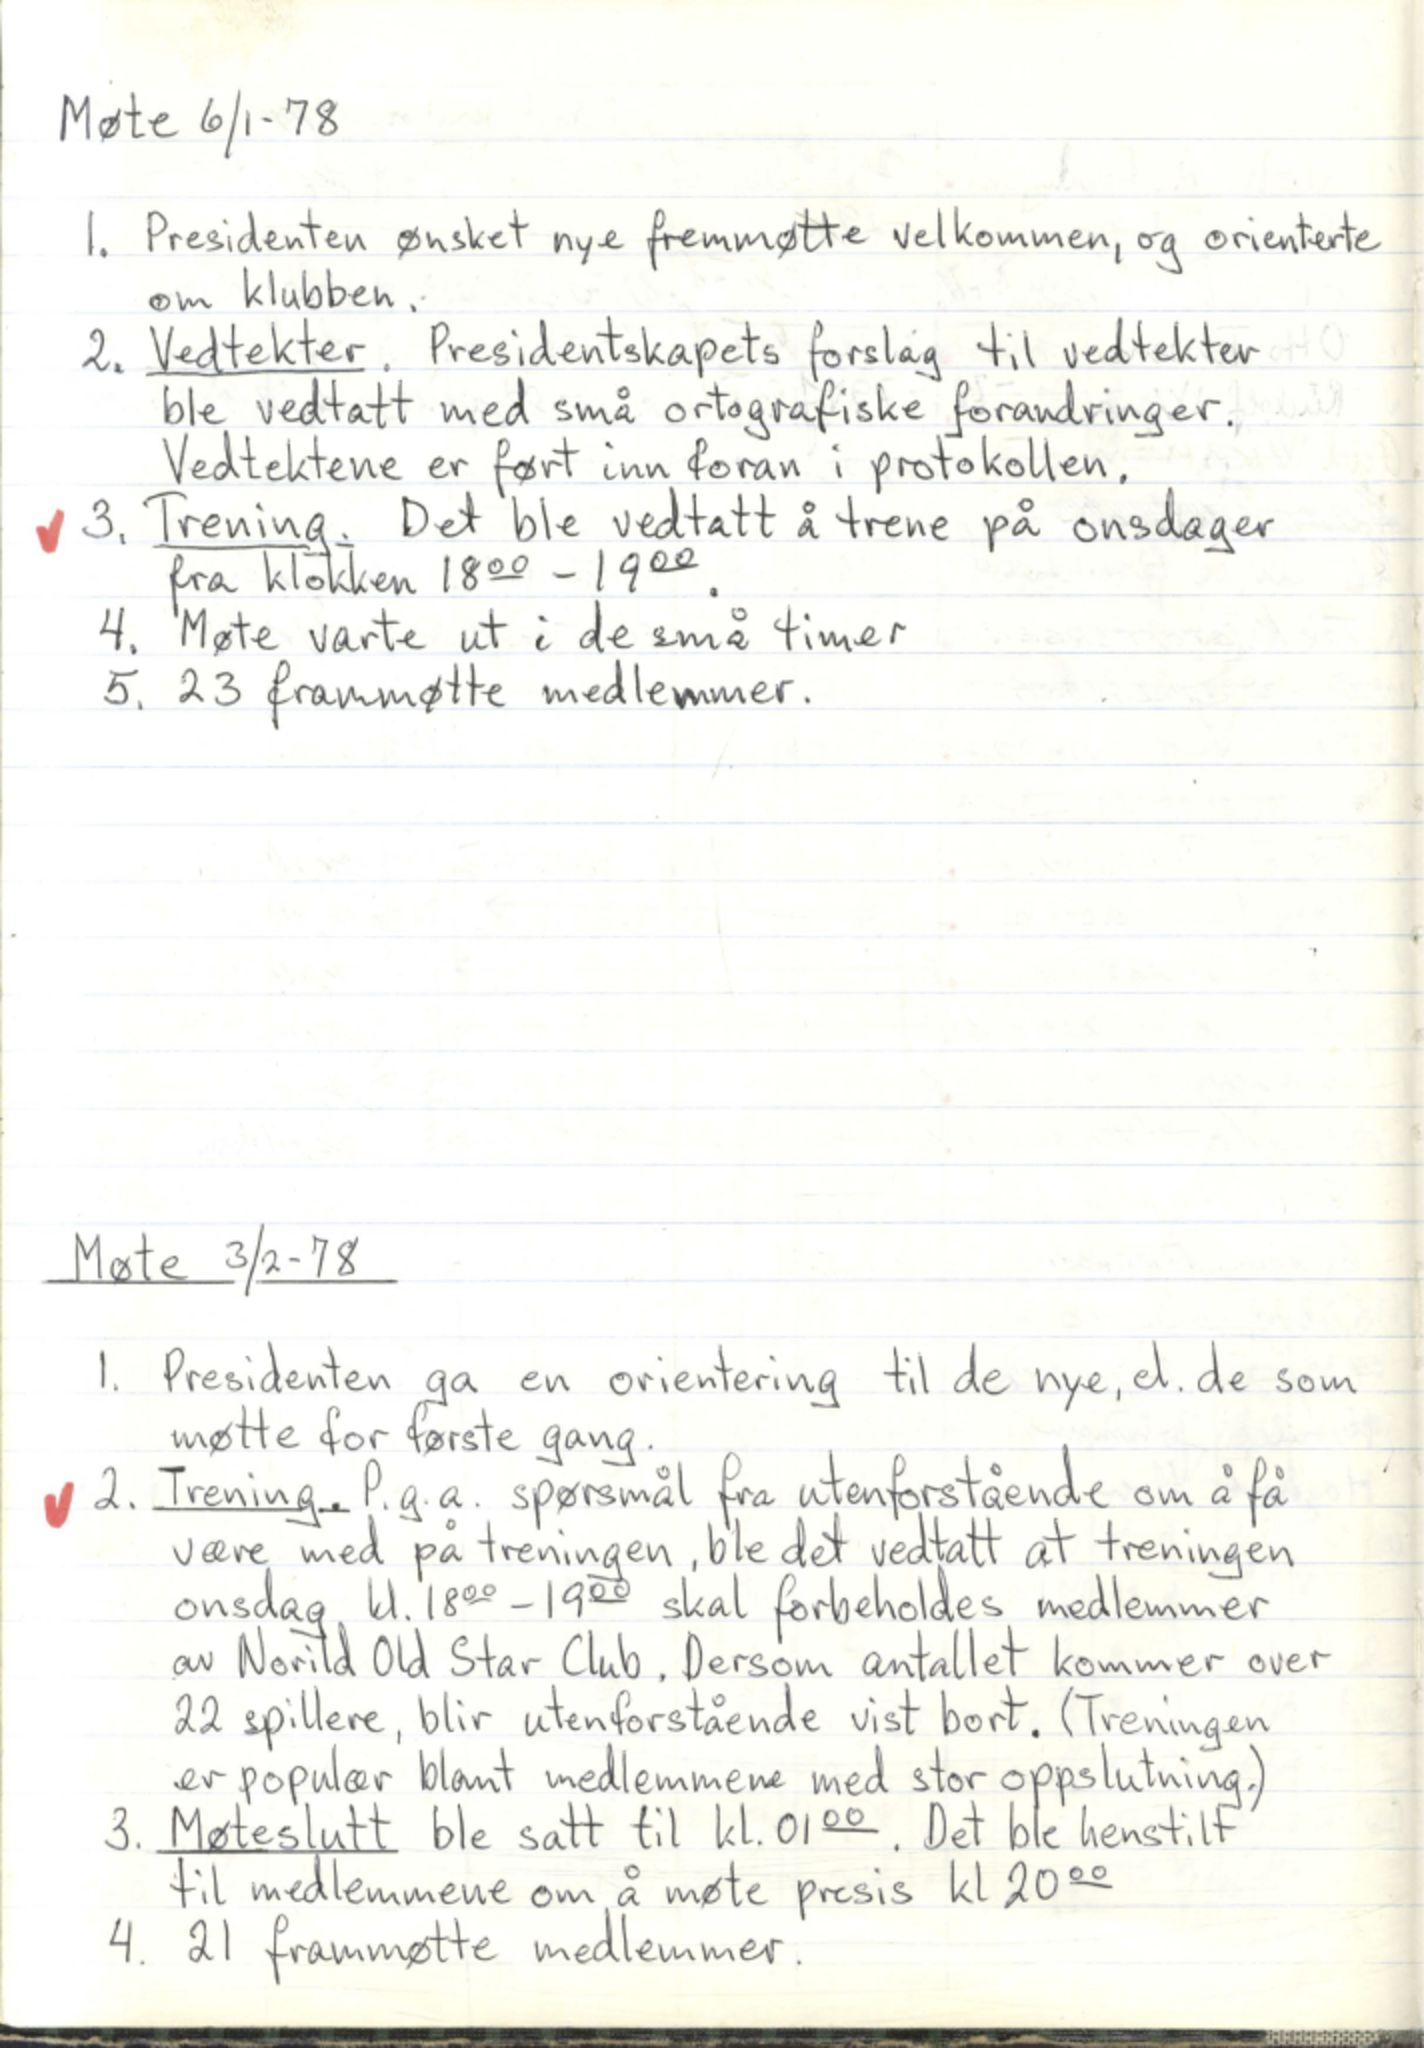 Møte 6/1-78
1. Presidenten ønsket nye fremmøtte velkommen, og orienterte
om klubben.
2. Vedtekter. Presidentskapets forslag til vedtekter
ble vedtatt med små ortografiske forandringer.
Vedtektene er ført inn foran i protokollen.
3. Trening. Det ble vedtatt å trene på onsdager
fra klokken 18⁰⁰ - 19⁰⁰.
4. Møte varte ut i de små timer
5. 23 frammøtte medlemmer.
Møte 3/2-78
1. Presidenten ga en orientering til de nye, el. de som
møtte for første gang.
2. Trening. P.g.a. spørsmål fra utenforstående om å få
være med på treningen, ble det vedtatt at treningen
onsdag kl. 18⁰⁰ - 19⁰⁰ skal forbeholdes medlemmer
av Norild Old Star Club. Dersom antallet kommer over
22 spillere, blir utenforstående vist bort. (Treningen
er populær blant medlemmene med stor oppslutning.)
3. Møteslutt ble satt til kl. 01⁰⁰. Det ble henstilt
til medlemmene om å møte presis kl 20⁰⁰
4. 21 frammøtte medlemmer.